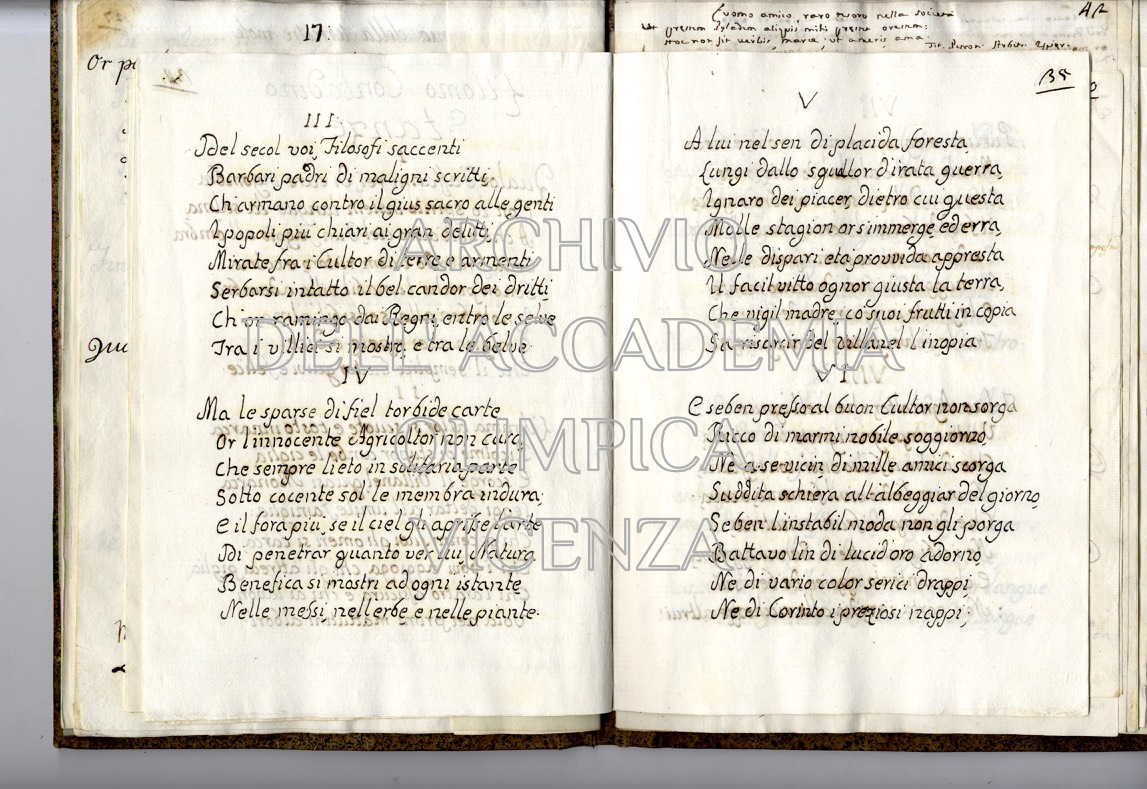 17
Or p
III
Del secol voi, Filosofi saccenti
Barbari padri di maligni scritti,
Ch'armano contro il gius sacro alle genti
I popoli più chiari ai gran delitti,
Mirate fra i Cultor di terre e armenti
Serbarsi intatto il bel candor dei dritti,
Ch'or ramingo dai Regni, entro le selve
Tra i villici si mostra, e tra le belve.
IV
Ma le sparse di fiel torbide carte
Or l'innocente Agricoltor non cura,
Che sempre lieto in solitaria parte
Sotto cocente sol le membra indura.
E il fora più, se il ciel gli aprisse l'arte
Di penetrar quanto ver lui Natura
Benefica si mostri ad ogni istante
Nelle messi, nell'erbe e nelle piante.
L'uomo amico, raro nuovo nella società
42
35
V
A lui nel sen di placida foresta,
Lungi dallo squillor d'irata guerra,
Ignaro dei piacer, dietro cui questa
Molle stagion or s'immerge, ed erra,
Nelle dispari età provvida appresta
Il facil vitto ognor giusta la terra,
Che vigil madre co' suoi frutti in copia
Sa risarcir del Villanel l'inopia.
VI
E seben presso al buon Cultor non sorga
Ricco di marmi nobile soggiorno,
Ne a se vicin di mille amici scorga
Suddita schiera all'albeggiar del giorno,
Seben l'instabil moda non gli porga
Battavo lin di lucid'oro adorno,
Ne di vario color serici drappi,
Ne di Corinto i preziosi nappi;
ARCHIVIO
DELL'ACCADEMIA
OLIMPICA
VICENZA